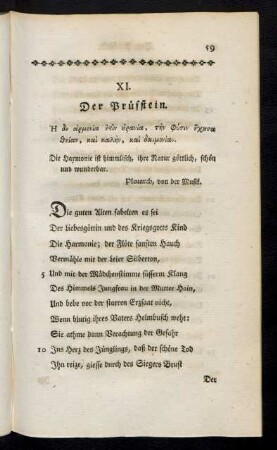 59
XI.
Der Prüfstein.
Die Harmonie ist himmlisch, ihre Natur göttlich, schön
und wunderbar.
Plutarch, von der Musik.
Die guten Alten fabelten es sei
Der liebesgöttin und des Kriegsgotts Kind
Die Harmonie; der Flöte sanften Hauch
Vermähle mit der leier Silberton,
5 Und mit der Mädchenstimme süsserm Klang
Des Himmels Jungfrau in der Mutter Hain,
Und bebe vor der starren Erzsaat nicht,
Wenn blutig ihres Vaters Helmbusch weht:
Sie athme dann Verachtung der Gefahr
10 Ins Herz des Jünglings, daß der schöne Tod
Ihn reize, giesse durch des Siegers Brust
Der